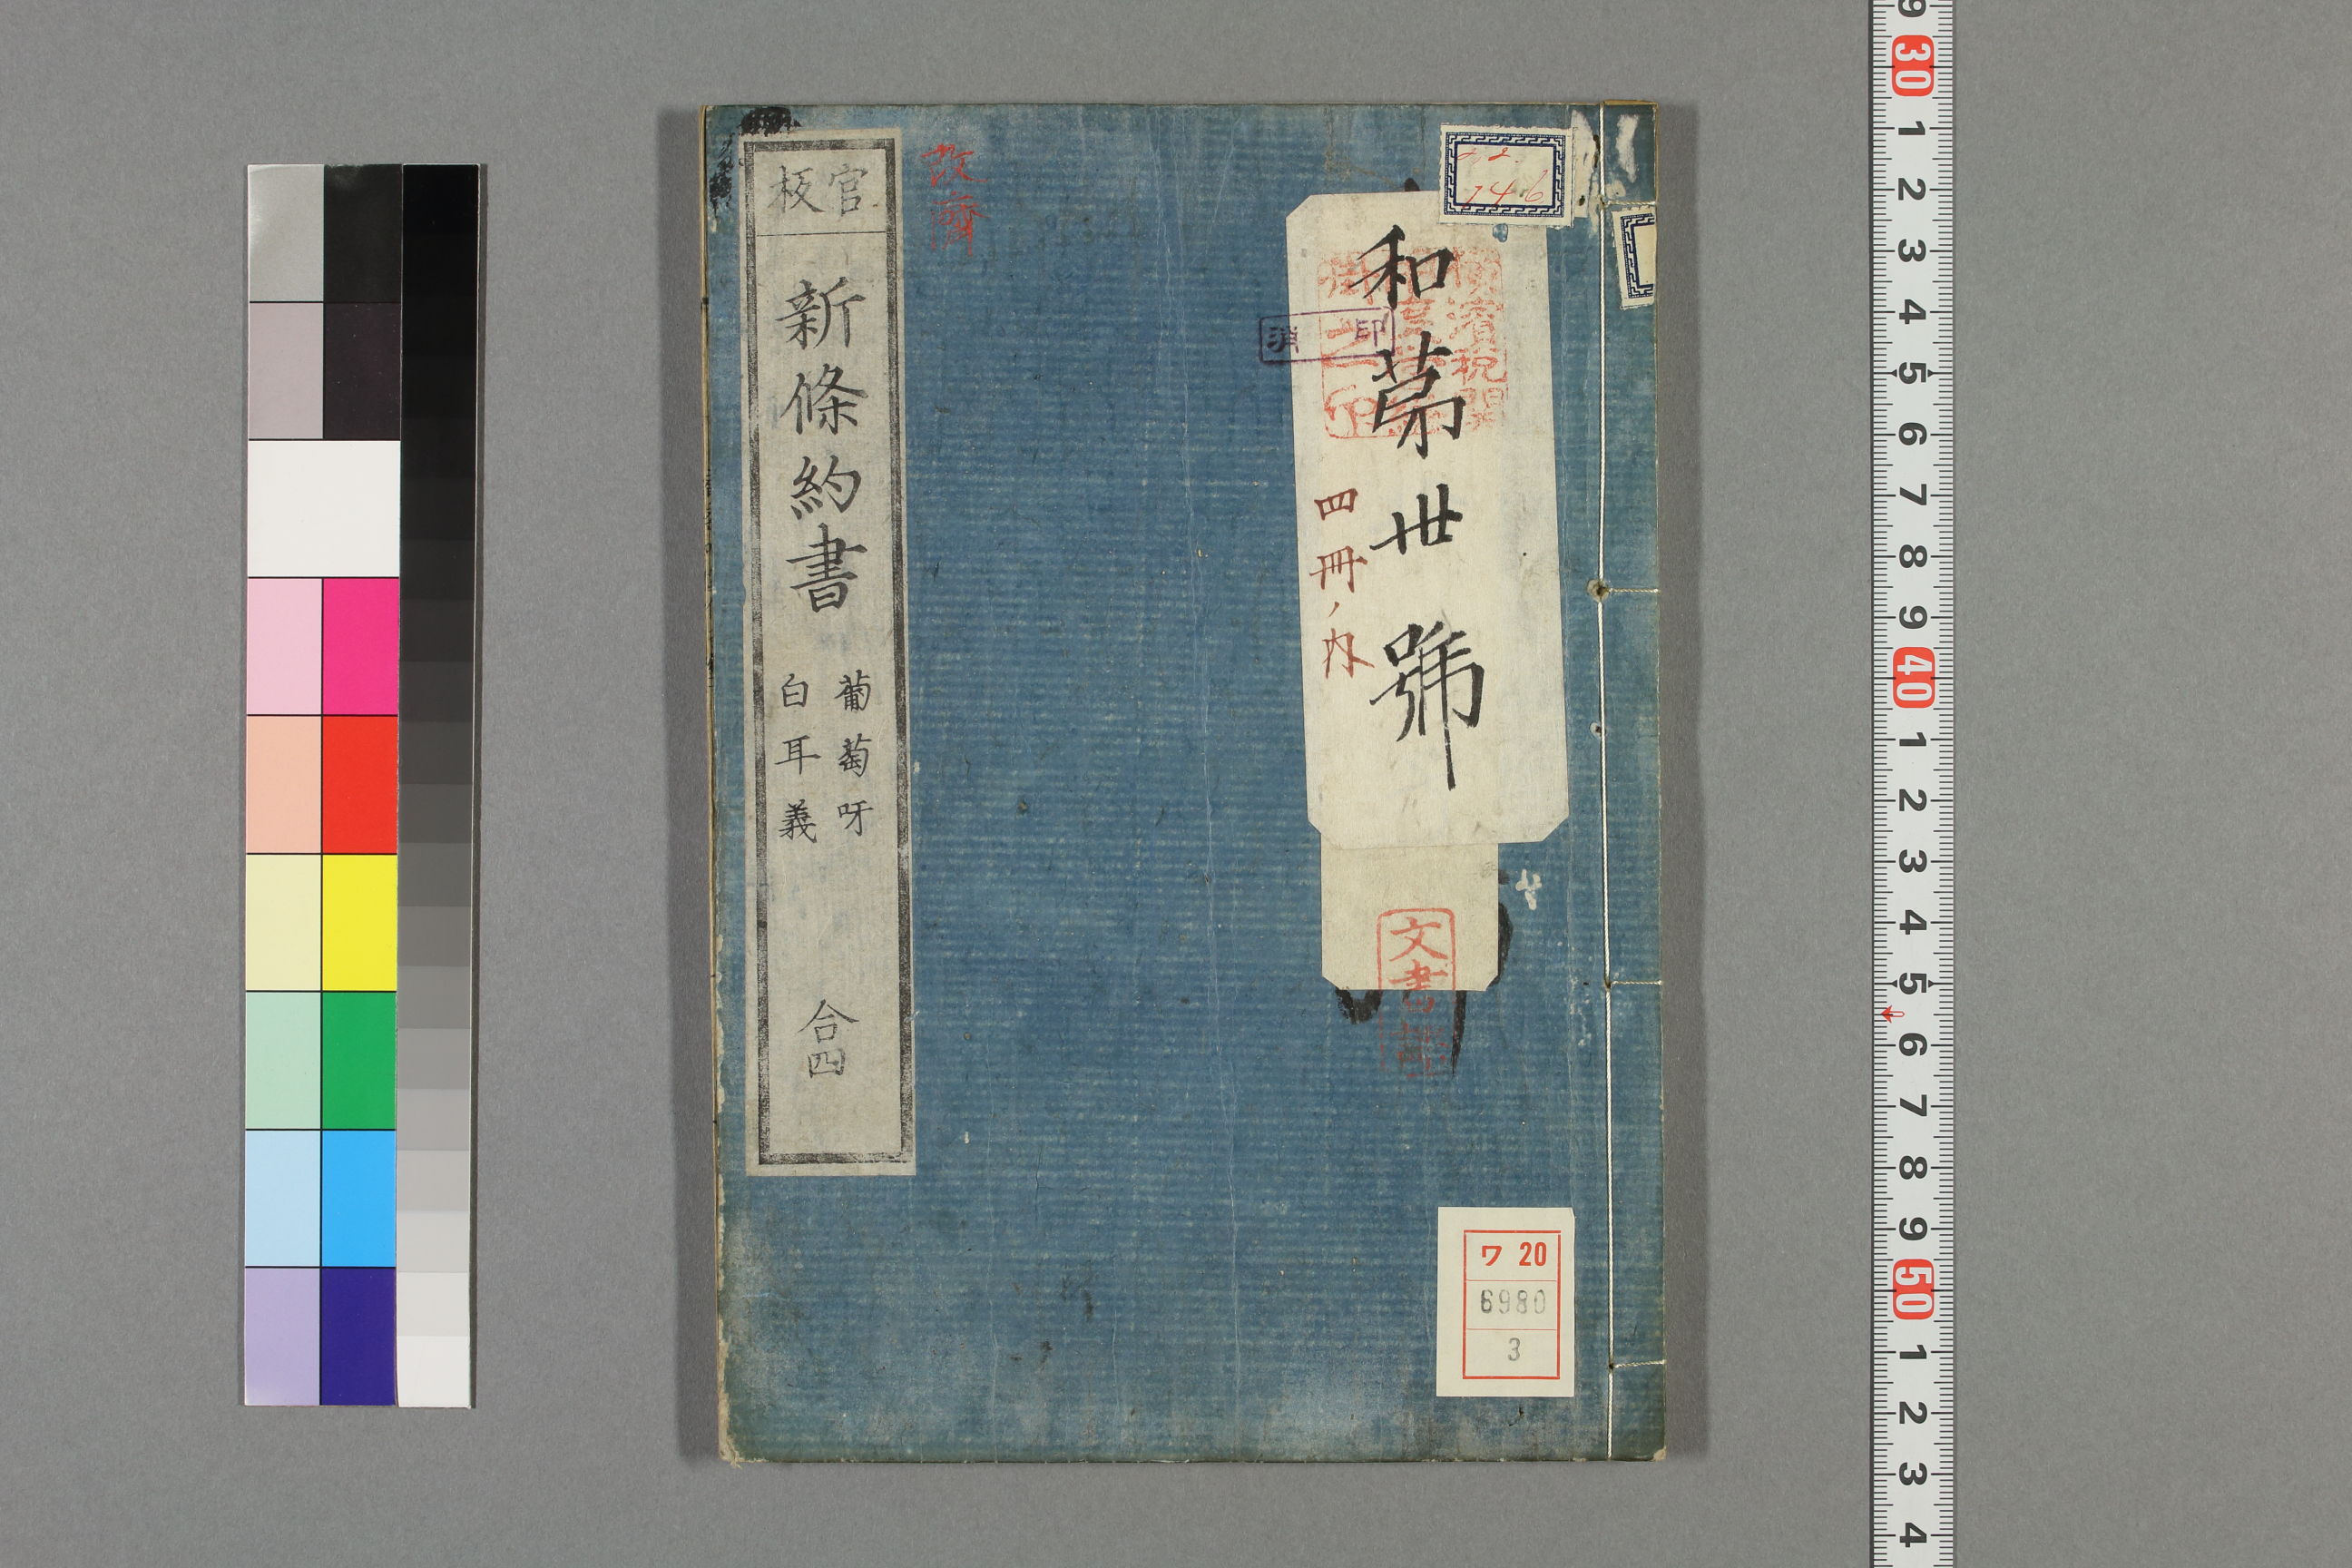 官板
新條約書
葡萄呀
白耳義
合四
改濟
22.
146
和第卅號
四冊ノ内
横濱税関
消印
文書
ワ 20
6980
3
9
30
1
2
3
4
5
6
7
8
9
40
1
2
3
4
5
6
7
8
9
50
1
2
3
4